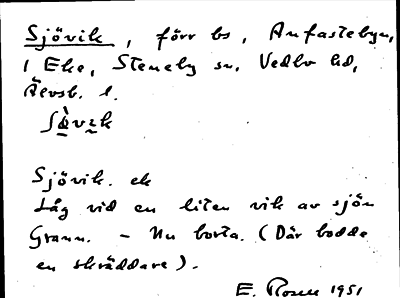 Sjövik, förr bs, Anfastebyn,
1 Eke, Steneby sn. Vedbo hd,
Älvsb. l.
Sjövik. ek
Låg vid en liten vik av sjön
Grann. – Nu borta. (Där bodde
en skräddare).
E. Rosell 1951